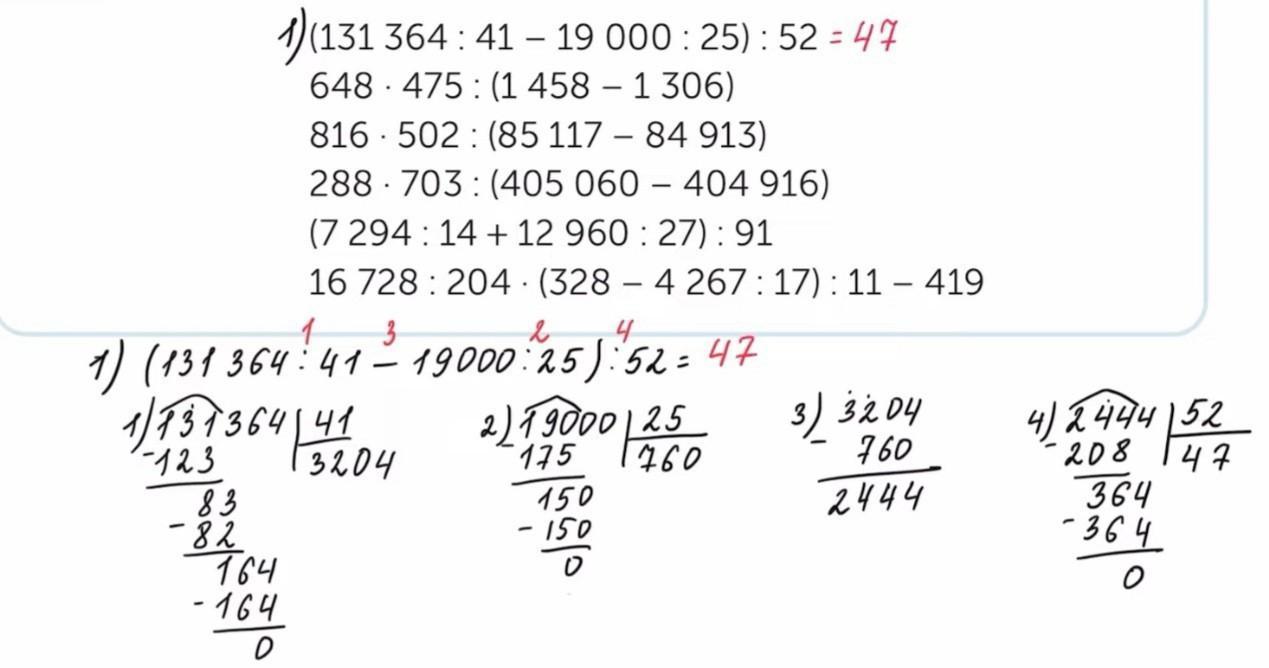 1) (131 364 : 41 – 19 000 : 25) : 52 = 47
648 · 475 : (1 458 – 1 306)
816 · 502 : (85 117 – 84 913)
288 · 703 : (405 060 – 404 916)
(7 294 : 14 + 12 960 : 27) : 91
16 728 : 204 · (328 – 4 267 : 17) : 11 – 419
1 3 2 4
1) (131 364 : 41 – 19000 : 25) : 52 = 47
1) 131364 41 2) 19000 25 3) 3204 4) 2444 52
-123 3204 -175 760 - 760 -208 47
83 150 2444 364
-82 -150 -364
164 0 0
-164
0